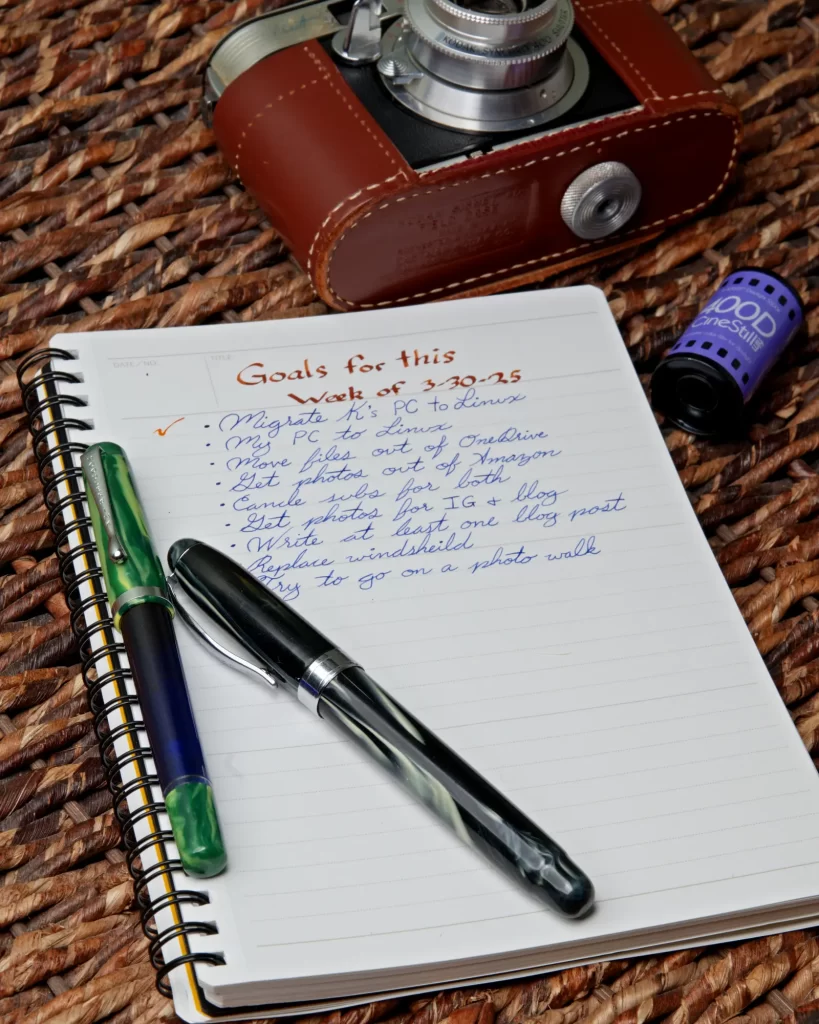 DATE/NO
TITLE
Goals for this
Week of 3-30-25
✓ • Migrate K's PC to Linux
• My PC to Linux
• Move files out of OneDrive
• Get photos out of Amazon
• Cancle subs for both
• Get photos for IG + blog
• Write at least one blog post
Replace windsheild
Try to go on a photo walk
400D
CineStill